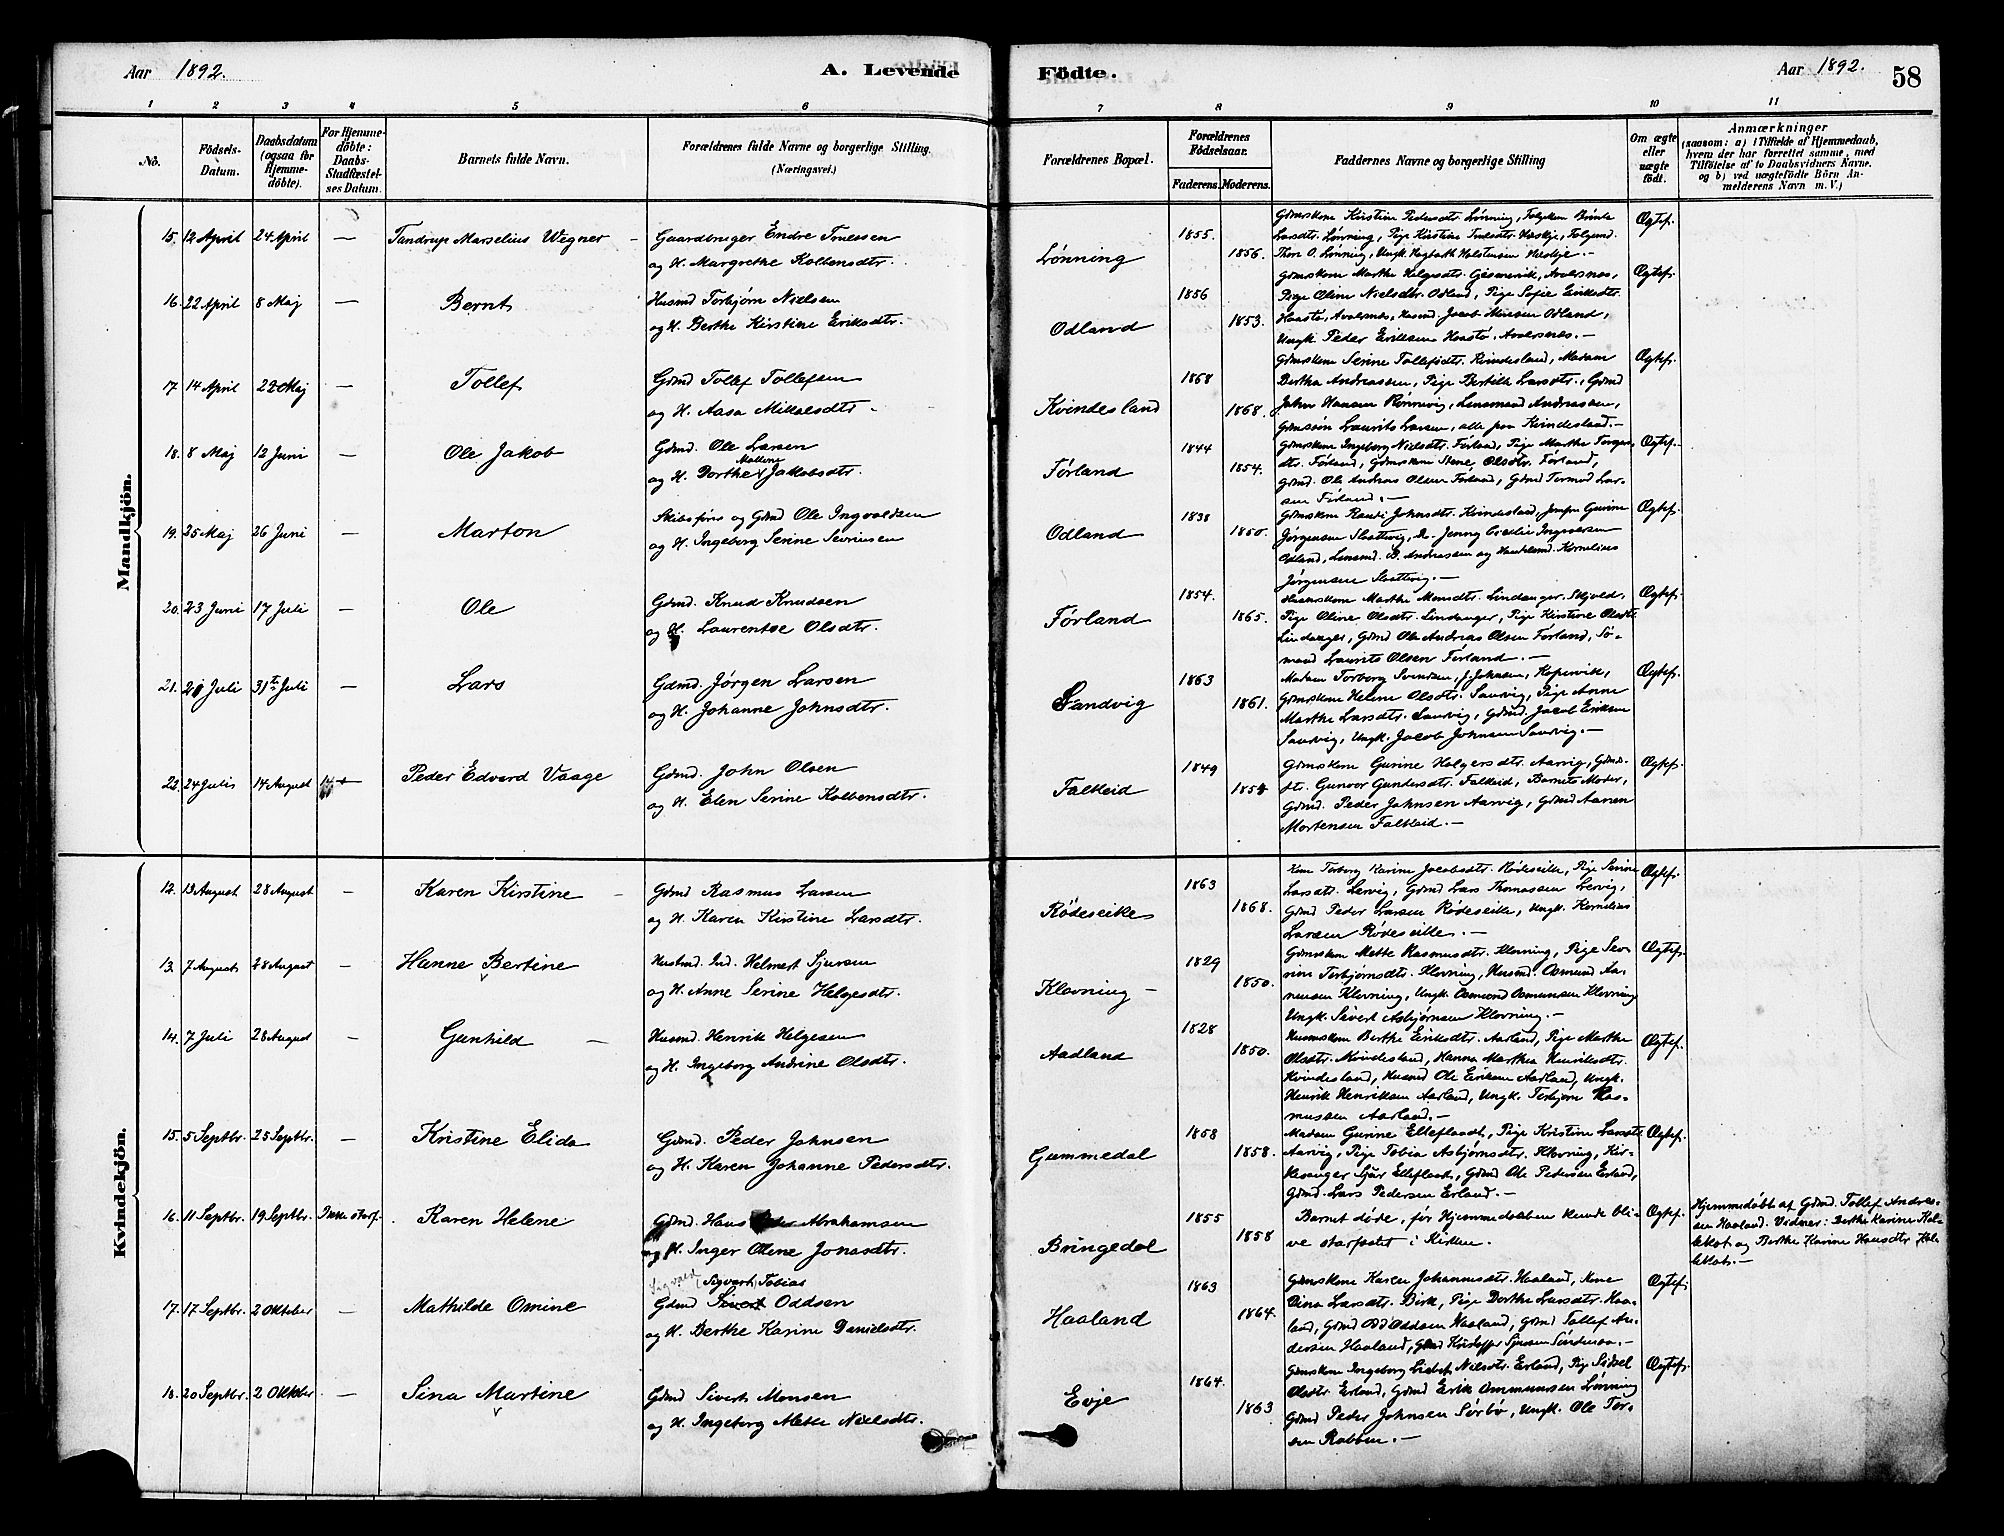 Aar 1892.
A. Levende
Födte.
Aar 1892.
58
1 2 3 4 5 6 7 8 9 10 11
No.
Födsels-Datum.
Daabsdatum (ogsaa for Hjemme-döbte).
For Hjemme-döbte: Daabs-Stadfæstel-ses Datum.
Barnets fulde Navn.
Forældrenes fulde Navne og borgerlige Stilling.
(Næringsvei.)
Forældrenes Bopæl.
Forældrenes Födselsaar.
Faderens. Moderens.
Faddernes Navne og borgerlige Stilling
Om ægte eller uægte födt.
Anmærkninger
(saasom: a) i Tilfælde af Hjemmedaab,
hvem der har forrettet samme, med
Tilföielse af to Daabsvidners Navne.
og b) ved uægtefödte Börn An-
melderens Navn m. V.)
Mandkjön.
15. 12 April 24 April — Tandrup Marselius Wegner — Gaardbruger Endre Tonessen
og H. Margrethe Kolbensdtr.
Lønning 1855. 1856. Ægtef.
Gdmskone Kirstine Pedersdt. Lønning,
Thore O. Lønning, Ungk.
16. 22 April 8 Maj — Bernt Husmd Torbjørn Nielsen
og H. Berthe Kirstine Eriksdtr.
Odland 1856 1853. Ægtef.
Gdmskone Marthe Helgesdt. Gismervik, Avalsnes,
Pige Oline Nielsdtr. Odland, Pige Sofie Eriksdt.
Avalsnes, Husmd. Jacob Odland,
Ungk. Peder Eriksen Avalsnes. —
17. 14 April 22 Maj — Tollef Gdmd Tollef Tollefsen
og H. Aasa Mikkelsdtr.
Kvindesland 1868 1868. Ægtef.
Gdmskone Serine Tollefsdt. Kvindesland, Madam
Bertha Andreassen, Pige Bertille Larsdt., Gdmd
John Hansen Rønnevig, Lensmand Andreassen,
Gdmsøn Laurits Larsen, alle paa Kvindesland. —
18. 8 Maj 12 Juni — Ole Jakob Gdmd. Ole Larsen
og H. Dorthe Malene Jakobsdtr.
Førland 1844 1854. Ægtef.
Gdmskone Ingeborg Nielsdt. Førland, Pige Marthe
dt. Førland, Gdmskone Stene Olsdtr. Førland,
Gdmd. Ole Andreas Olsen Førland, Gdmd Tormod Lar-
sen Førland. —
19. 25 Maj 26 Juni — Marton Skibsfører og Gdmd Ole Ingvaldsen
og H. Ingeborg Serine Sevrinsen
Odland 1838 1850. Ægtef.
Gdmskone Randi Johnsdt. Kvindesland, Jomfru Gurine
Jørgensen Slattevig, Jenny Cecilie Ingversen
Odland, Lensmd. B. Andreassen og Kornelius
Jørgensen Slattevig. —
20. 23 Juni 17 Juli — Ole Gdmd. Knud Knudsen
og H. Laurentse Olsdtr.
Førland 1854. 1865. Ægtef.
Marthe Monsdt. Lindanger, Skjold,
Pige Oline Olsdt. Lindanger, Pige Kirstine Olsdt.
Lindanger, Gdmd Ole Andreas Olsen Førland, Sø-
mand Laurits Olsen Førland. —
21. 21 Juli 31te Juli — Lars Gdmd. Jørgen Larsen
og H. Johanne Johnsdtr.
Sandvig 1863 1861. Ægtef.
Madam Torborg Svendsen, J. Johnsen, Kopervik,
Gdmskone Helene Olsdt. Sandvig, Pige Anne
Marthe Larsdtr. Sandvig, Gdmd. Jacob Eriksen
Sandvig, Ungk. Jacob Johnsen Sandvig. —
22. 24 Juli 14 August Peder Edvard Vaage Gdmd. John Olsen
og H. Elen Serine Kolbensdtr.
Falkeid 1849 1854 Ægtef.
Gdmskone Gurine Holgersdt. Aarvig, Gdmd-
dt. Gunvor Gundersdt. Falkeid, Barnets Moder,
Gdmd. Peder Johnsen Aarvig, Gdmd Aanen
Mortensen Falkeid. —
Kvindekjön.
12. 13 August 28 August — Karen Kirstine — Gdmd Rasmus Larsen
og H. Karen Kirstine Larsdtr.
Rödeseike 1863 1868. Ægtef.
Kone Torborg Karine Jacobsdt. Rödeseike, Pige Serine
Larsdt. Lervig, Gdmd Lars Thomassen Lervig,
Gdmd Peder Larsen Rödeseike, Ungk. Kornelius
Larsen Rödeseike. —
13. 7 August 28 August — Hanne Bertine Husmd. Ind. Helmert Sjursen
og H. Anne Serine Helgesdtr.
Klovning — 1829 1850. Ægtef.
Gdmskone Mette Rasmusdt. Klovning, Pige Sev-
rine Torbjørnsdt. Klovning, Husmd. Osmund Aa-
nensen Klovning, Ungk. Osmund Osmunsen Klovning
Ungk. Sivert Asbjørnsen Klovning. —
14. 7 Juli 28 August — Gunhild — Husmd Henrik Helgesen
og H. Ingeborg Andrine Olsdtr.
Aadland 1828 1850. Ægtef.
Husmskone Berthe Eriksdt. Aarland, Pige Marthe
Olsdt. Kvindesland, Hanna Marthea Henriksdt.
Kvindesland, Husmd Ole Eriksen Aarland, Ungk.
Henrik Henriksen Aarland, Ungk. Torbjørn Ras-
mussen Aarland. —
15. 5 Septbr. 25 Septbr. — Kristine Elida Gdmd. Peder Johnsen
og H. Karen Johanne Pedersdtr.
Gummedal 1858 1858. Ægtef.
Madam Gurine Elleflaadt, Pige Kristine Larsdt.
Aarvig, Pige Tobia Asbjørnsdt. Klovning, Kir-
kesanger Sjur Elleflaadt, Gdmd Ole Pedersen Erland,
Gdmd. Lars Pedersen Erland. —
16. 11 Septbr. 19 Septbr. Ikke stadf. Karen Helene Gdmd. Hans Abrahamsen
og H. Inger Oline Jonasdtr.
Bringedal 1855 1858 Ægtef.
Barnet døde, før Hjemmedaaben kunde bli-
ve stadfæstet i Kirken.
Hjemmedøbt af Gdmd. Tollef Andrea-
sen Haaland. Vidner: Berthe Karine
og Berthe Karine Hansdtr
17. 17 Septbr. 2 Oktober — Mathilde Omine Sigvald Sigvart Tobias
Gdmd Sivert Oddsen
og H. Berthe Karine Danielsdtr.
Haaland 1863 1864. Ægtef.
Gdmskone Karen Johannesdt. Haaland, Kone
Dina Larsdt. Birk, Pige Dorthe Larsdt. Haa-
land, Gdmd Odd Oddsen Haaland, Gdmd Tollef An-
dersen Haaland, Gdmd Kristoffer Sjursen
18. 20 Septbr. 2 Oktober — Sina Martine Gdmd Sivert Monsen
og H. Ingeborg Mette Nielsdtr.
Evje 1864. 1863 Ægtef.
Gdmskone Ingeborg Lisbet Nielsdtr. Erland, Pige Sidsel
Olsdtr. Erland, Gdmd Erik Ommundsen Lønning
Gdmd Peder Johnsen Sørbø, Ungk. Ole Tor-
sen Rabben. —